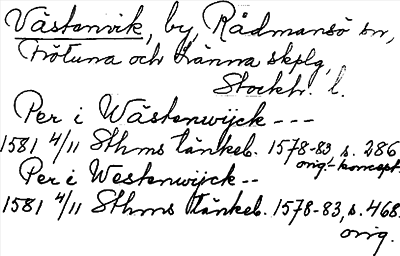 Västenvik, by, Rådmansö sn,
Frötuna och Länna skplg,
Stockh. l.
Per i Wästenwijck ---
1581 4/11 Sthms tänkeb. 1578-83 s. 286
orig.-koncept.
Per i Westenwijck--
1581 4/11 Sthms tänkeb. 1578-83, s. 468.
orig.